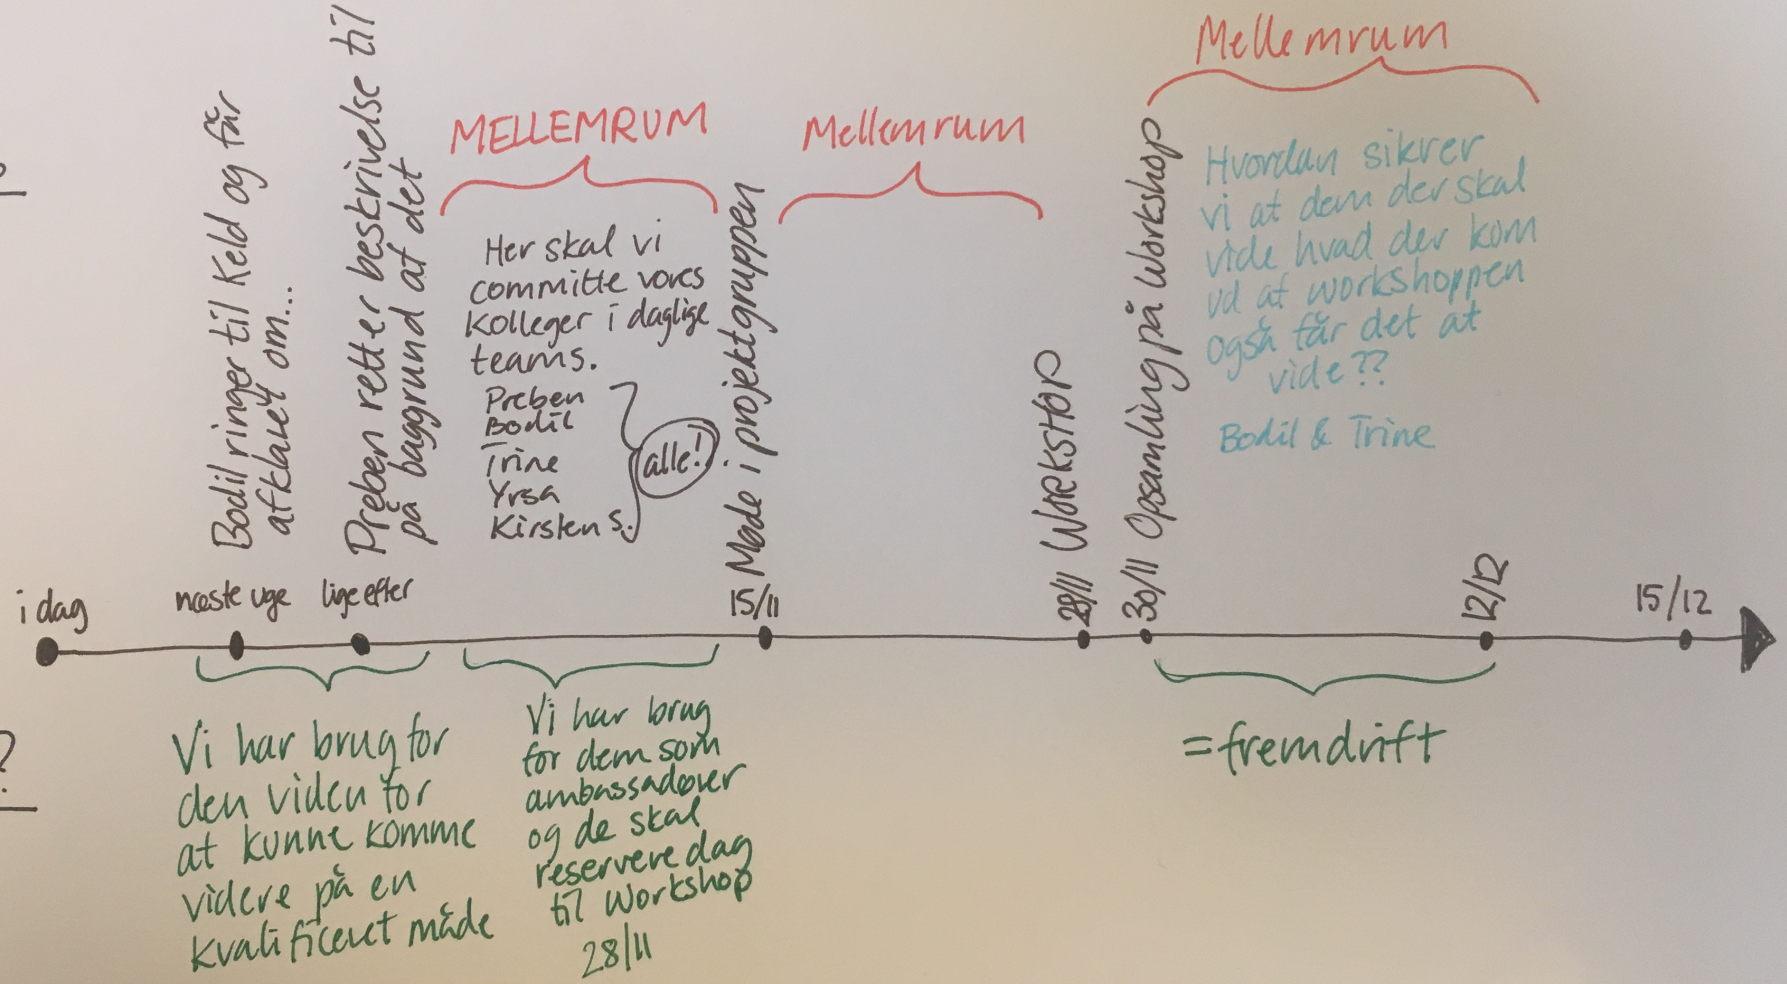 Mellemrum
MELLEMRUM
Mellemrum
Bodil ringer til Keld og får
afklaret om...
Preben retter beskrivelse til
på baggrund af det
Her skal vi
committe vores
kolleger i daglige
teams.
Preben
Bodil
Trine
Yrsa
Kirsten S.
alle!
Møde i projektgruppen
WORKSHOP
Opsamling på Workshop
Hvordan sikrer
vi at dem der skal
vide hvad der kom
ud af workshoppen
også får det at
vide??
Bodil & Trine
i dag
næste uge
lige efter
15/11
28/11
30/11
12/12
15/12
?
Vi har brug for
den viden for
at kunne komme
videre på en
kvalificeret måde
Vi har brug
for dem som
ambassadører
og de skal
reservere dag
til Workshop
28/11
=fremdrift